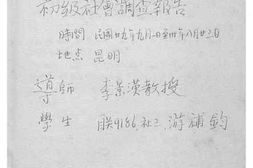 初級社會調查報告
時間 民國廿九年九月一日至四年八月廿二日
地点 昆明
導師 李景漢教授
學生 聯9186,社三,游補鈞